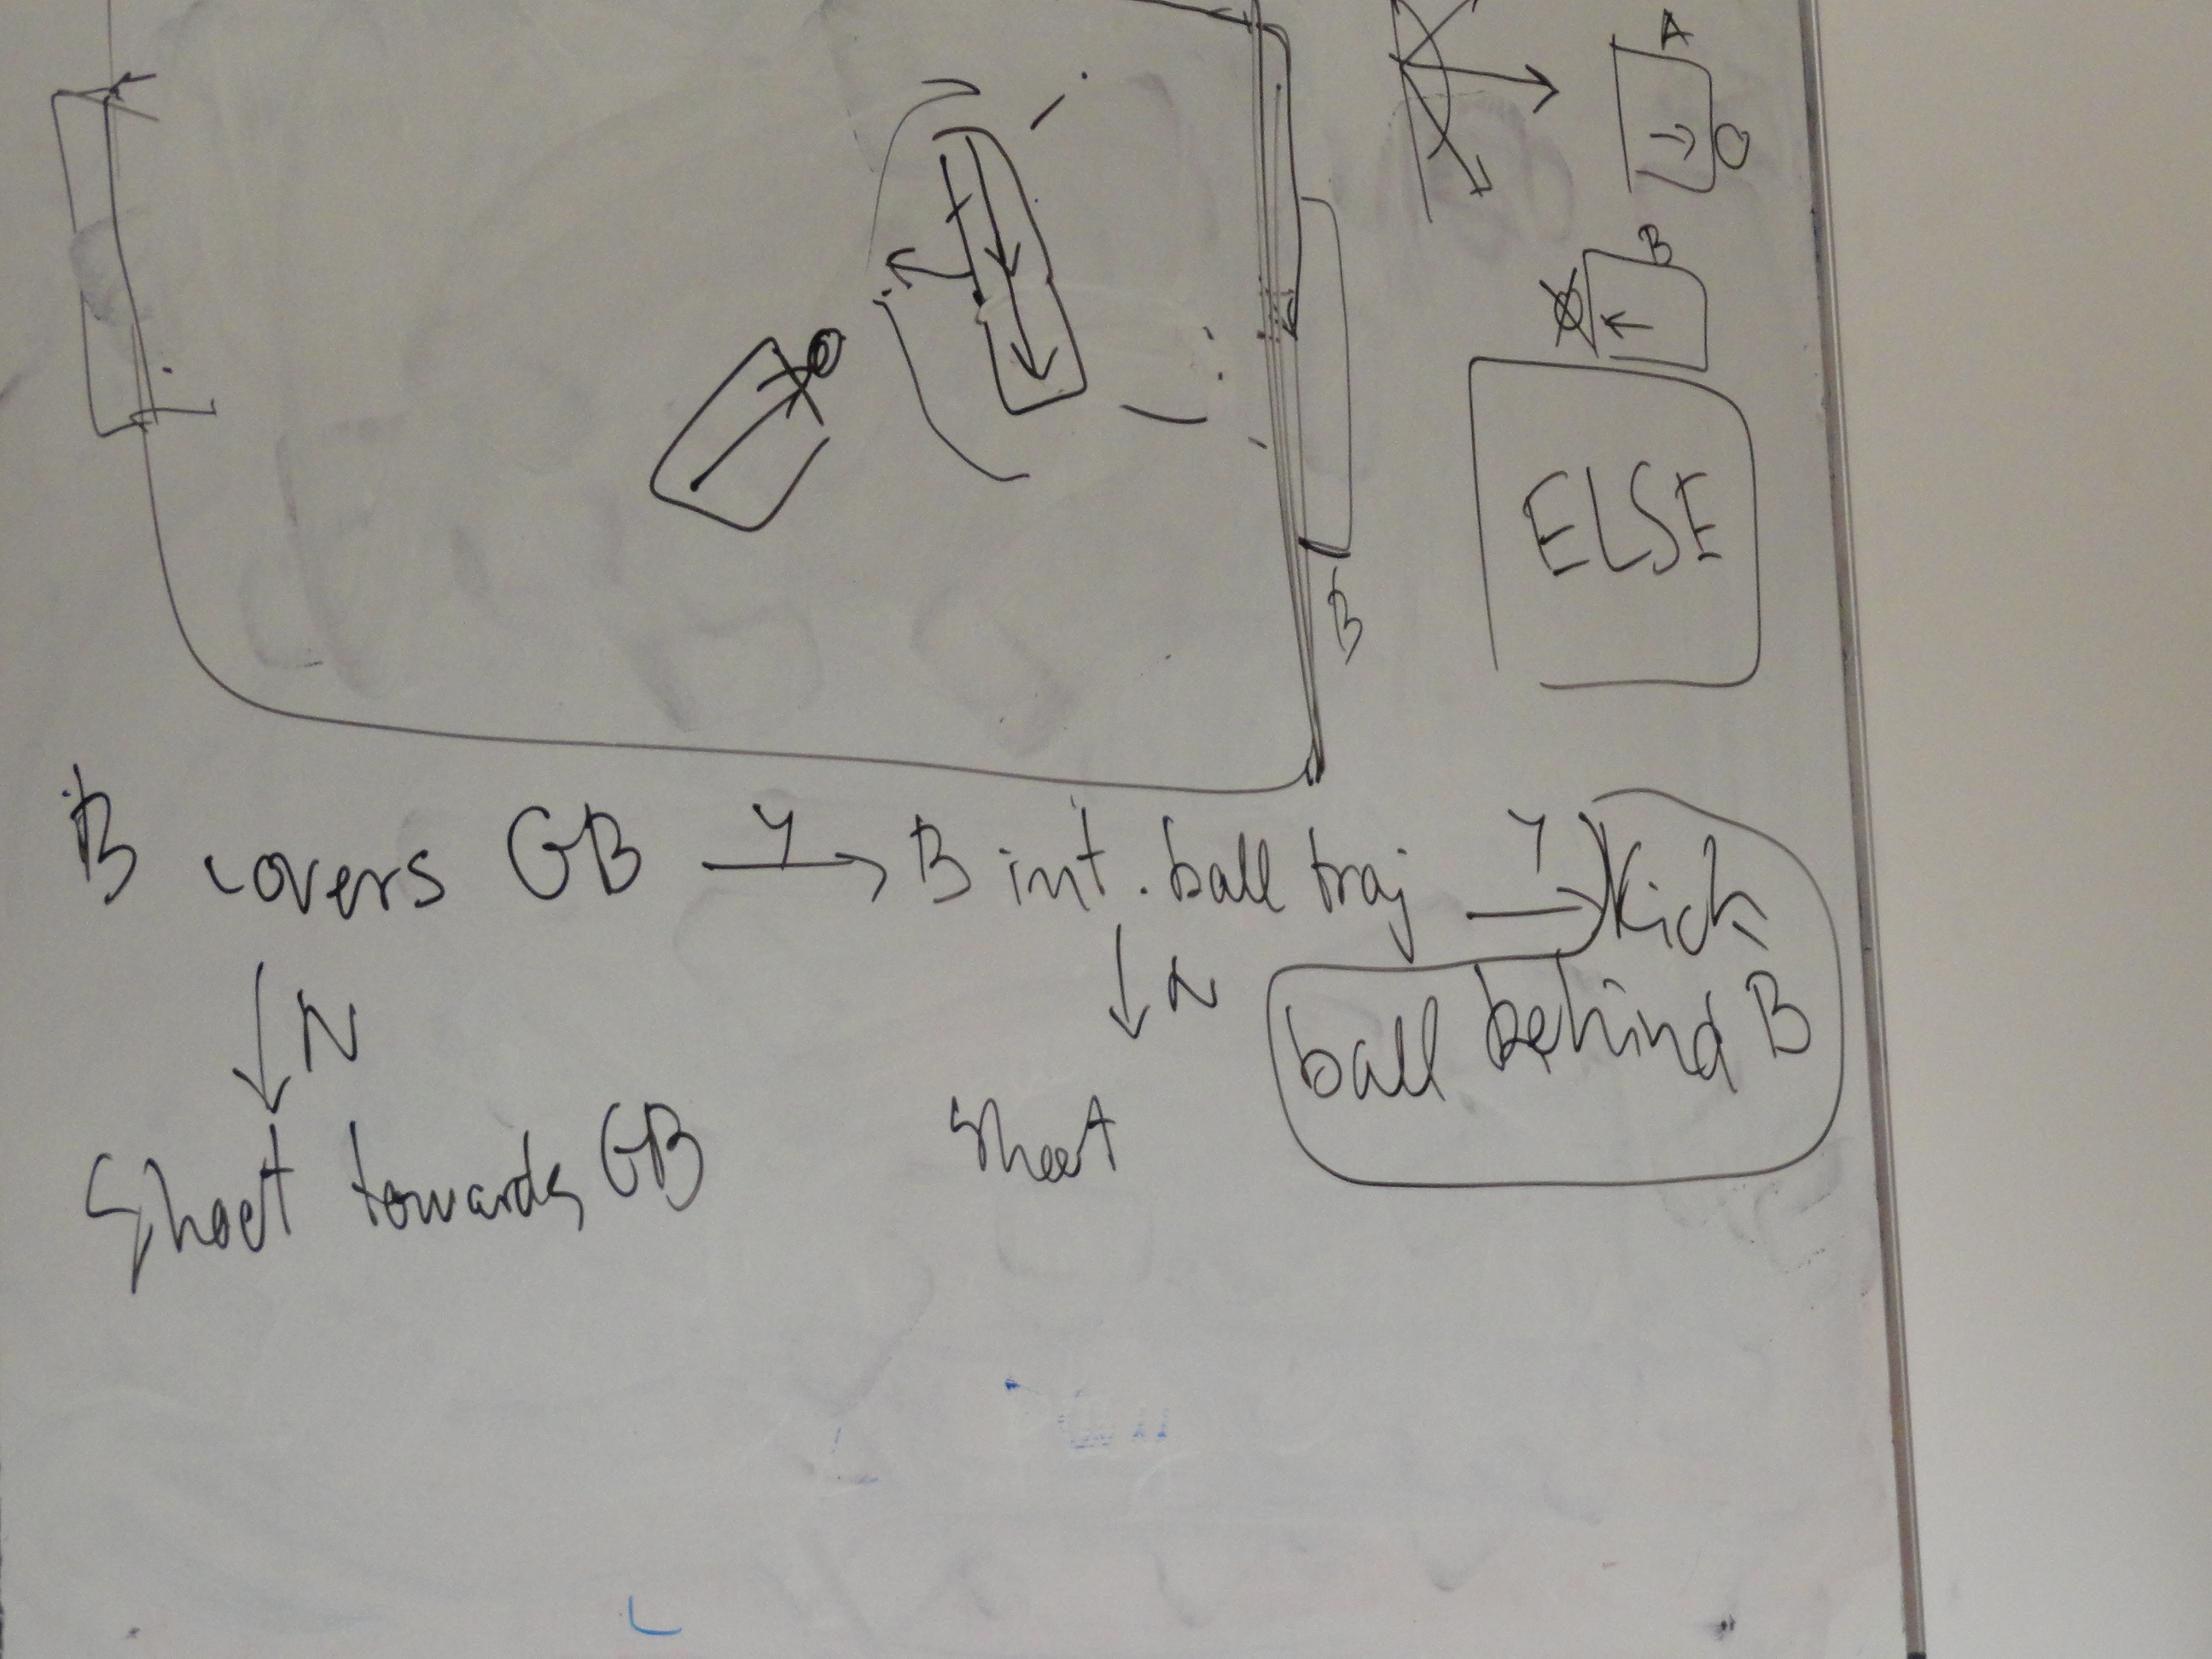 A
B
ELSE
B
B covers GB Y B int. ball traj Y Kick
N N ball behind B
Shoot towards GB Shoot